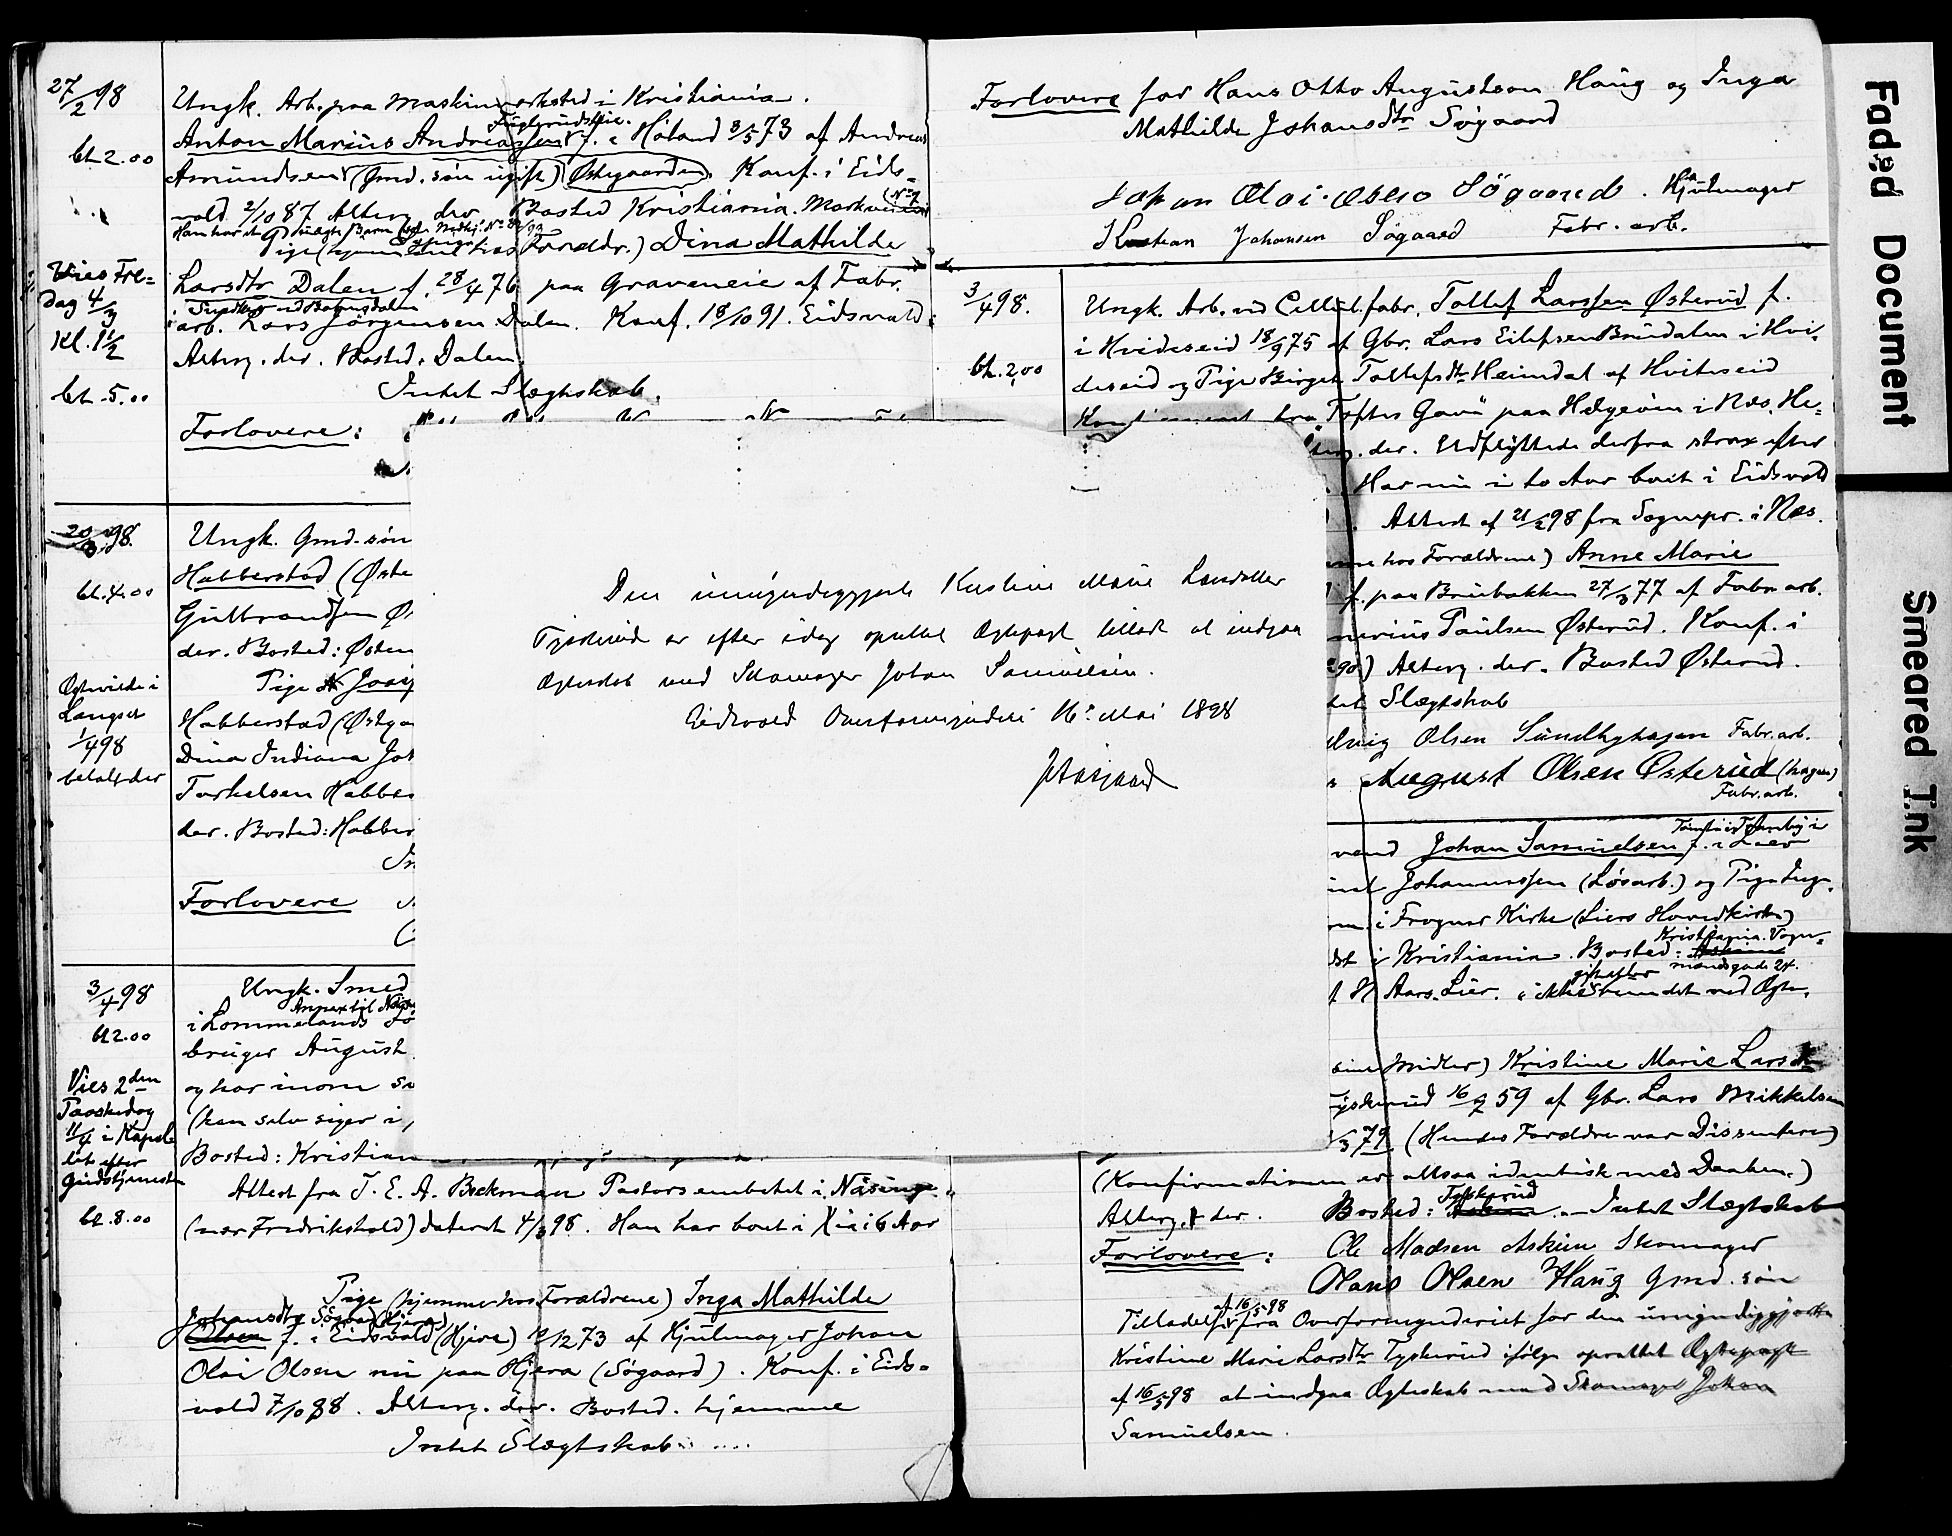 27/2 98
Ungk. Arb. paa Maskinverksted i Kristiania.
bt. 2.00
Anton Marius Andreassen f. i Höland 3/5 73 af Andreas
Amundsen (Gmd. søn ugift) Østgaarden. Konf. i Eids-
vold 2/10 87 Alterg. der. Bosted Kristiania. Markveien
Pige (hjemme hos Foreldr.) Dina Mathilde
Vies Fre-
dag 4/3
Kl. 1 1/2
bt. 5.00
Larsdtr Dalen f. 28/4 76 paa Graveneie af Fabr.
arb. Lars Jörgensen Dalen. Konf. 18/10 91. Eidsvold.
Alterg. der. Bosted. Dalen.
Intet Slægtskab.
Forlovere:
20/3 98.
bt. 4.00
Ungk. Gmd. søn
Habberstad (Øste
Gulbrandsen Ø
der. Bosted: Østen
Pige
Habberstad (Østga
Dina Indiana Joh
Torkelsen Habbe
der. Bosted: Habber
In
Forlovere
Ægtevidde i
Langset
1/4 98
betalt der
3/4 98
bt 2.00
Ungk. Smed
i Lommelands
bruger August
og har inom
(han selv siger i
Bosted: Kristian
Vies 2den
Paaskedag
11/4 i Kapel
let efter
Gudstjenesten
bt. 8.00
Attest fra J. E. A. Beckman Pastorsembetet i Näsinge
(nær Fredrikshald) dateret 4/3 98. Han har boet i Xia i 6 Aar
Pige (hjemme hos Forældrene) Inga Mathilde
Johansdtr Sögaard (Hjera)
Olsen f. i Eidsvold (Hjera) 12/12 73 af Hjulmager Johan
Olai Olsen nu paa Hjera (Sögaard). Konf. i Eids-
vold 7/10 88. Alterg. der. Bosted. hjemme
Intet Slægtskab.
Forlovere for Hans Otto Augustson Haug og Inga
Mathilde Johansdtr Sögaard
Johan Olai Olsen Sögaard. Hjulmager
Kristian Johansen Sögaard Fabr. arb.
3/4 98.
bt. 2,00
Ungk. Arb. ved Cellul. fabr. Tollef Larssen Østerud f.
i Hvideseid 18/9 75 af Gbr. Lars Eilefsen Brudalen i Hvi-
deseid og Pige Birget Tollefsdtr Heimdal af Hviteseid
Konfirmeret fra Toftes Gave paa Helgeøen i Næs, He-
der. Udflyttede derfra strax efter
Har nu i to Aar boet i Eidsvold
Attest af 21/2 98 fra Sognepr. i Næs.
hos Forældrene) Anne Marie
f. paa Brubakken 27/3 77 af Fabr. arb.
Paulsen Østerud. Konf. i
Alterg. der. Bosted Østerud.
Slægtskab
Olsen Sundbyhagen Fabr. arb.
August Olsen Østerud (hagen)
Fabr. arb.
Johan Samuelsen f. i Lier
Johannessen (Løsarb.) og Pige Inge-
i Frogner Kirke (Liers Hovedkirke)
i Kristiania. Bosted: Kristiania. Vogn-
mandsgade 24.
H Aars. Lier.
sine Midler) Kristine Marie Larsdtr
16/7 59 af Gbr. Lars Mikkelsen
79. (Hendes Forældre var Dissentere)
(Konfirmationen er altsaa identisk med Daaben.)
Alterg. der. Bosted: Tyskerud. Intet Slægtskab
Forlovere: Ole Madsen Askim Skomager
Hans Olsen Haug Gmd. søn
Tilladelse af 16/5 98 fra Overformynderiet for den umyndiggjorte
Kristine Marie Larsdtr Tyskerud ifølge oprettet Ægtepagt
af 16/5 98 at indgaa Ægteskab med Skomager Johan
Samuelsen.
Den umyndiggjorte Kristine Marie Larsdatter
Tyskerud er efter idag oprettet Ægtepagt tilladt at indgaa
Ægteskab med Skomager Johan Samuelsen.
Eidsvold Overformynderi 16de Mai 1898
Faded Document
Smeared Ink